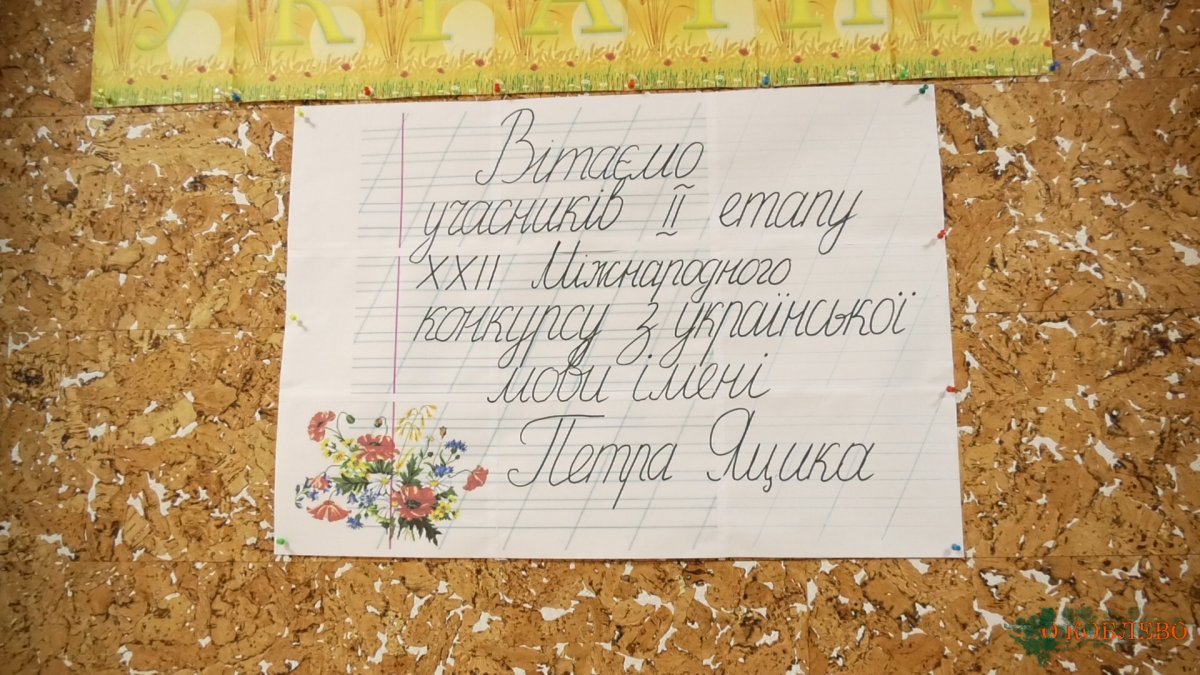 УКРАЇНА
Вітаємо
учасників ІІ етапу
ХХІІ Міжнародного
конкурсу з української
мови імені
Петра Яцика
КОБЛЕВО